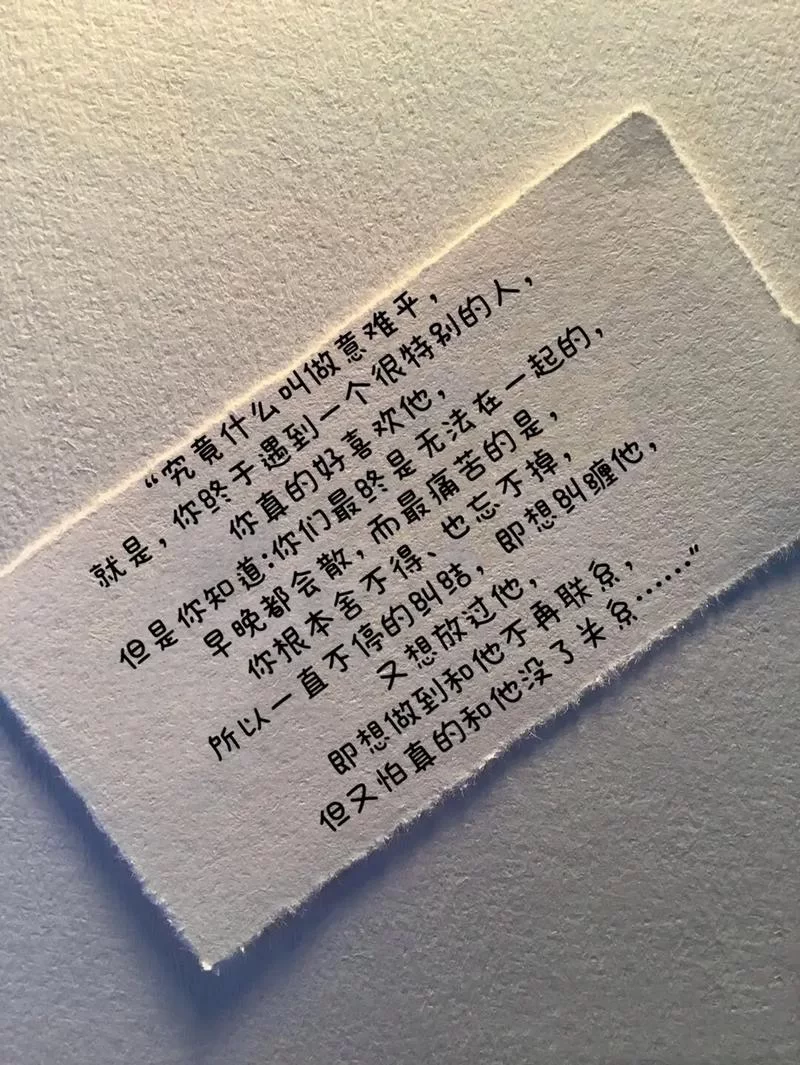 “究竟什么叫做意难平，
就是，你终于遇到一个很特别的人，
你真的好喜欢他，
但是你知道:你们最终是无法在一起的，
早晚都会散，而最痛苦的是，
你根本舍不得、也忘不掉，
所以一直不停的纠结，即想纠缠他，
又想放过他，
即想做到和他不再联系，
但又怕真的和他没了关系……”